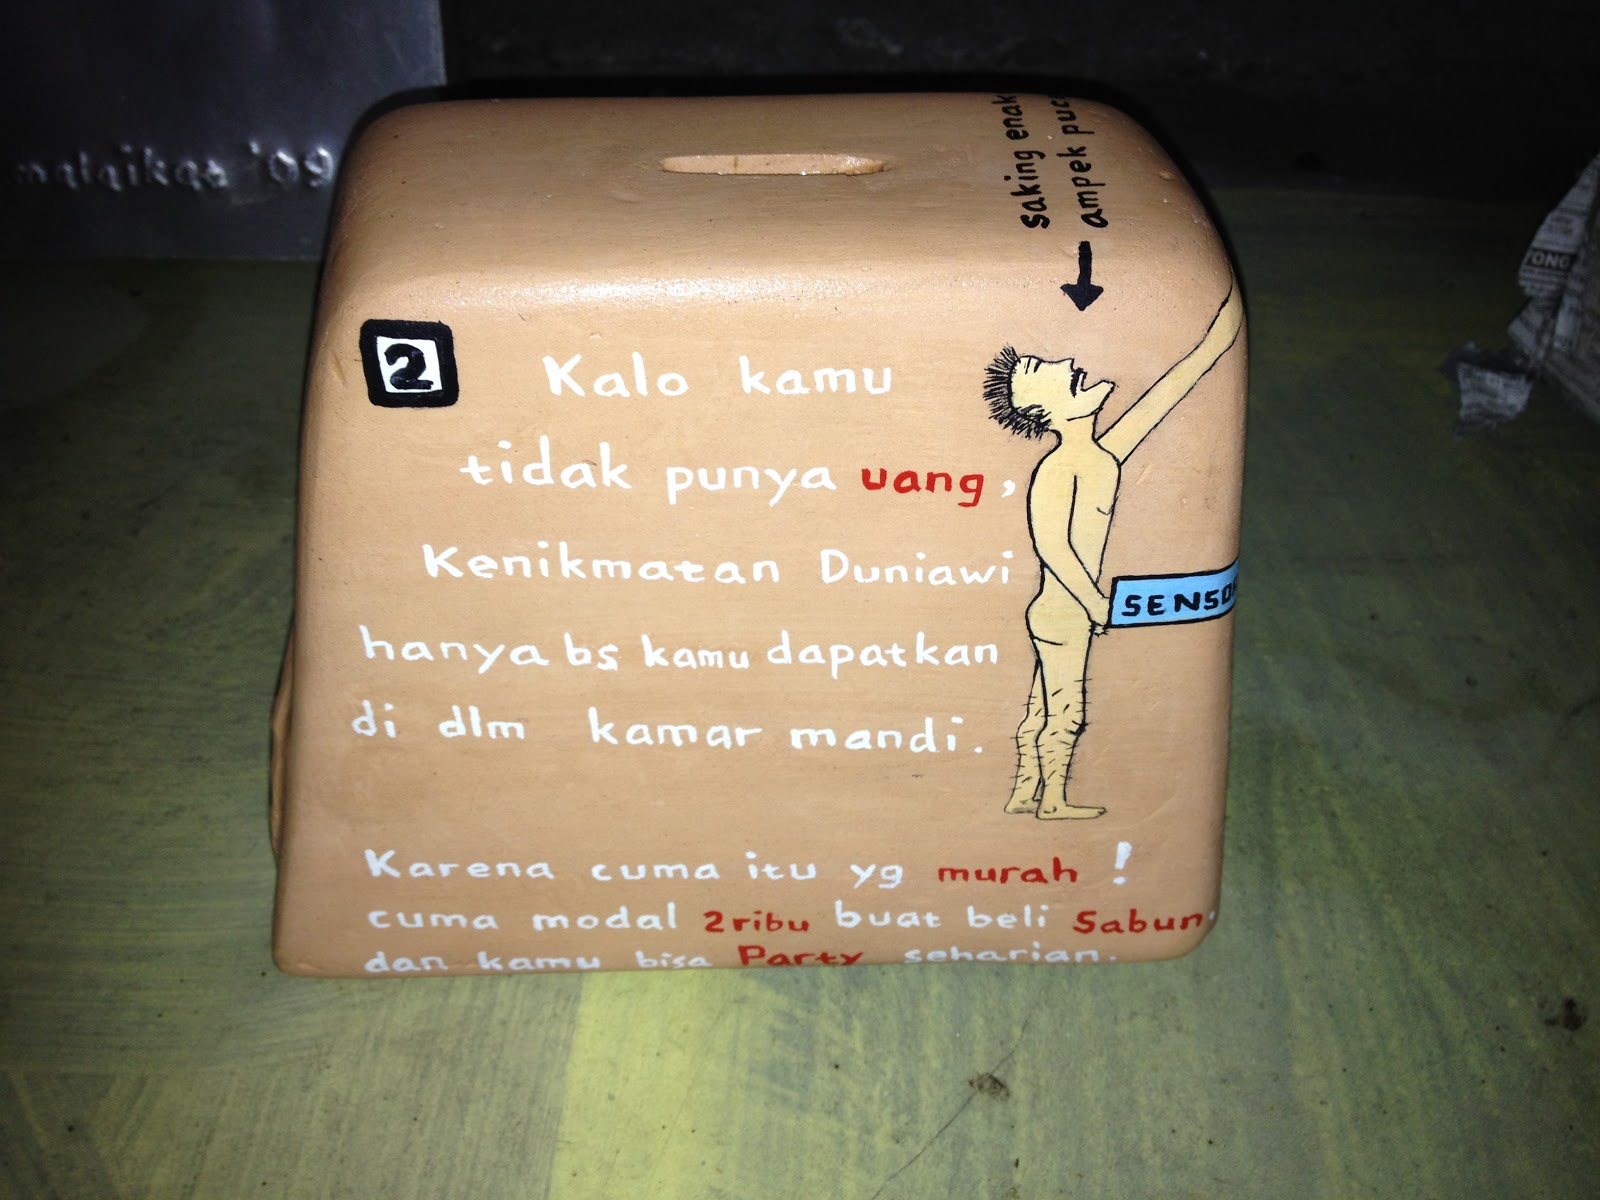 malaikat '09
saking enak
ampek
2
Kalo kamu
tidak punya uang,
Kenikmatan Duniawi
hanya bs kamu dapatkan
di dlm kamar mandi.
SENSO
Karena cuma itu yg murah !
cuma modal 2ribu buat beli Sabun.
dan kamu bisa Party seharian.